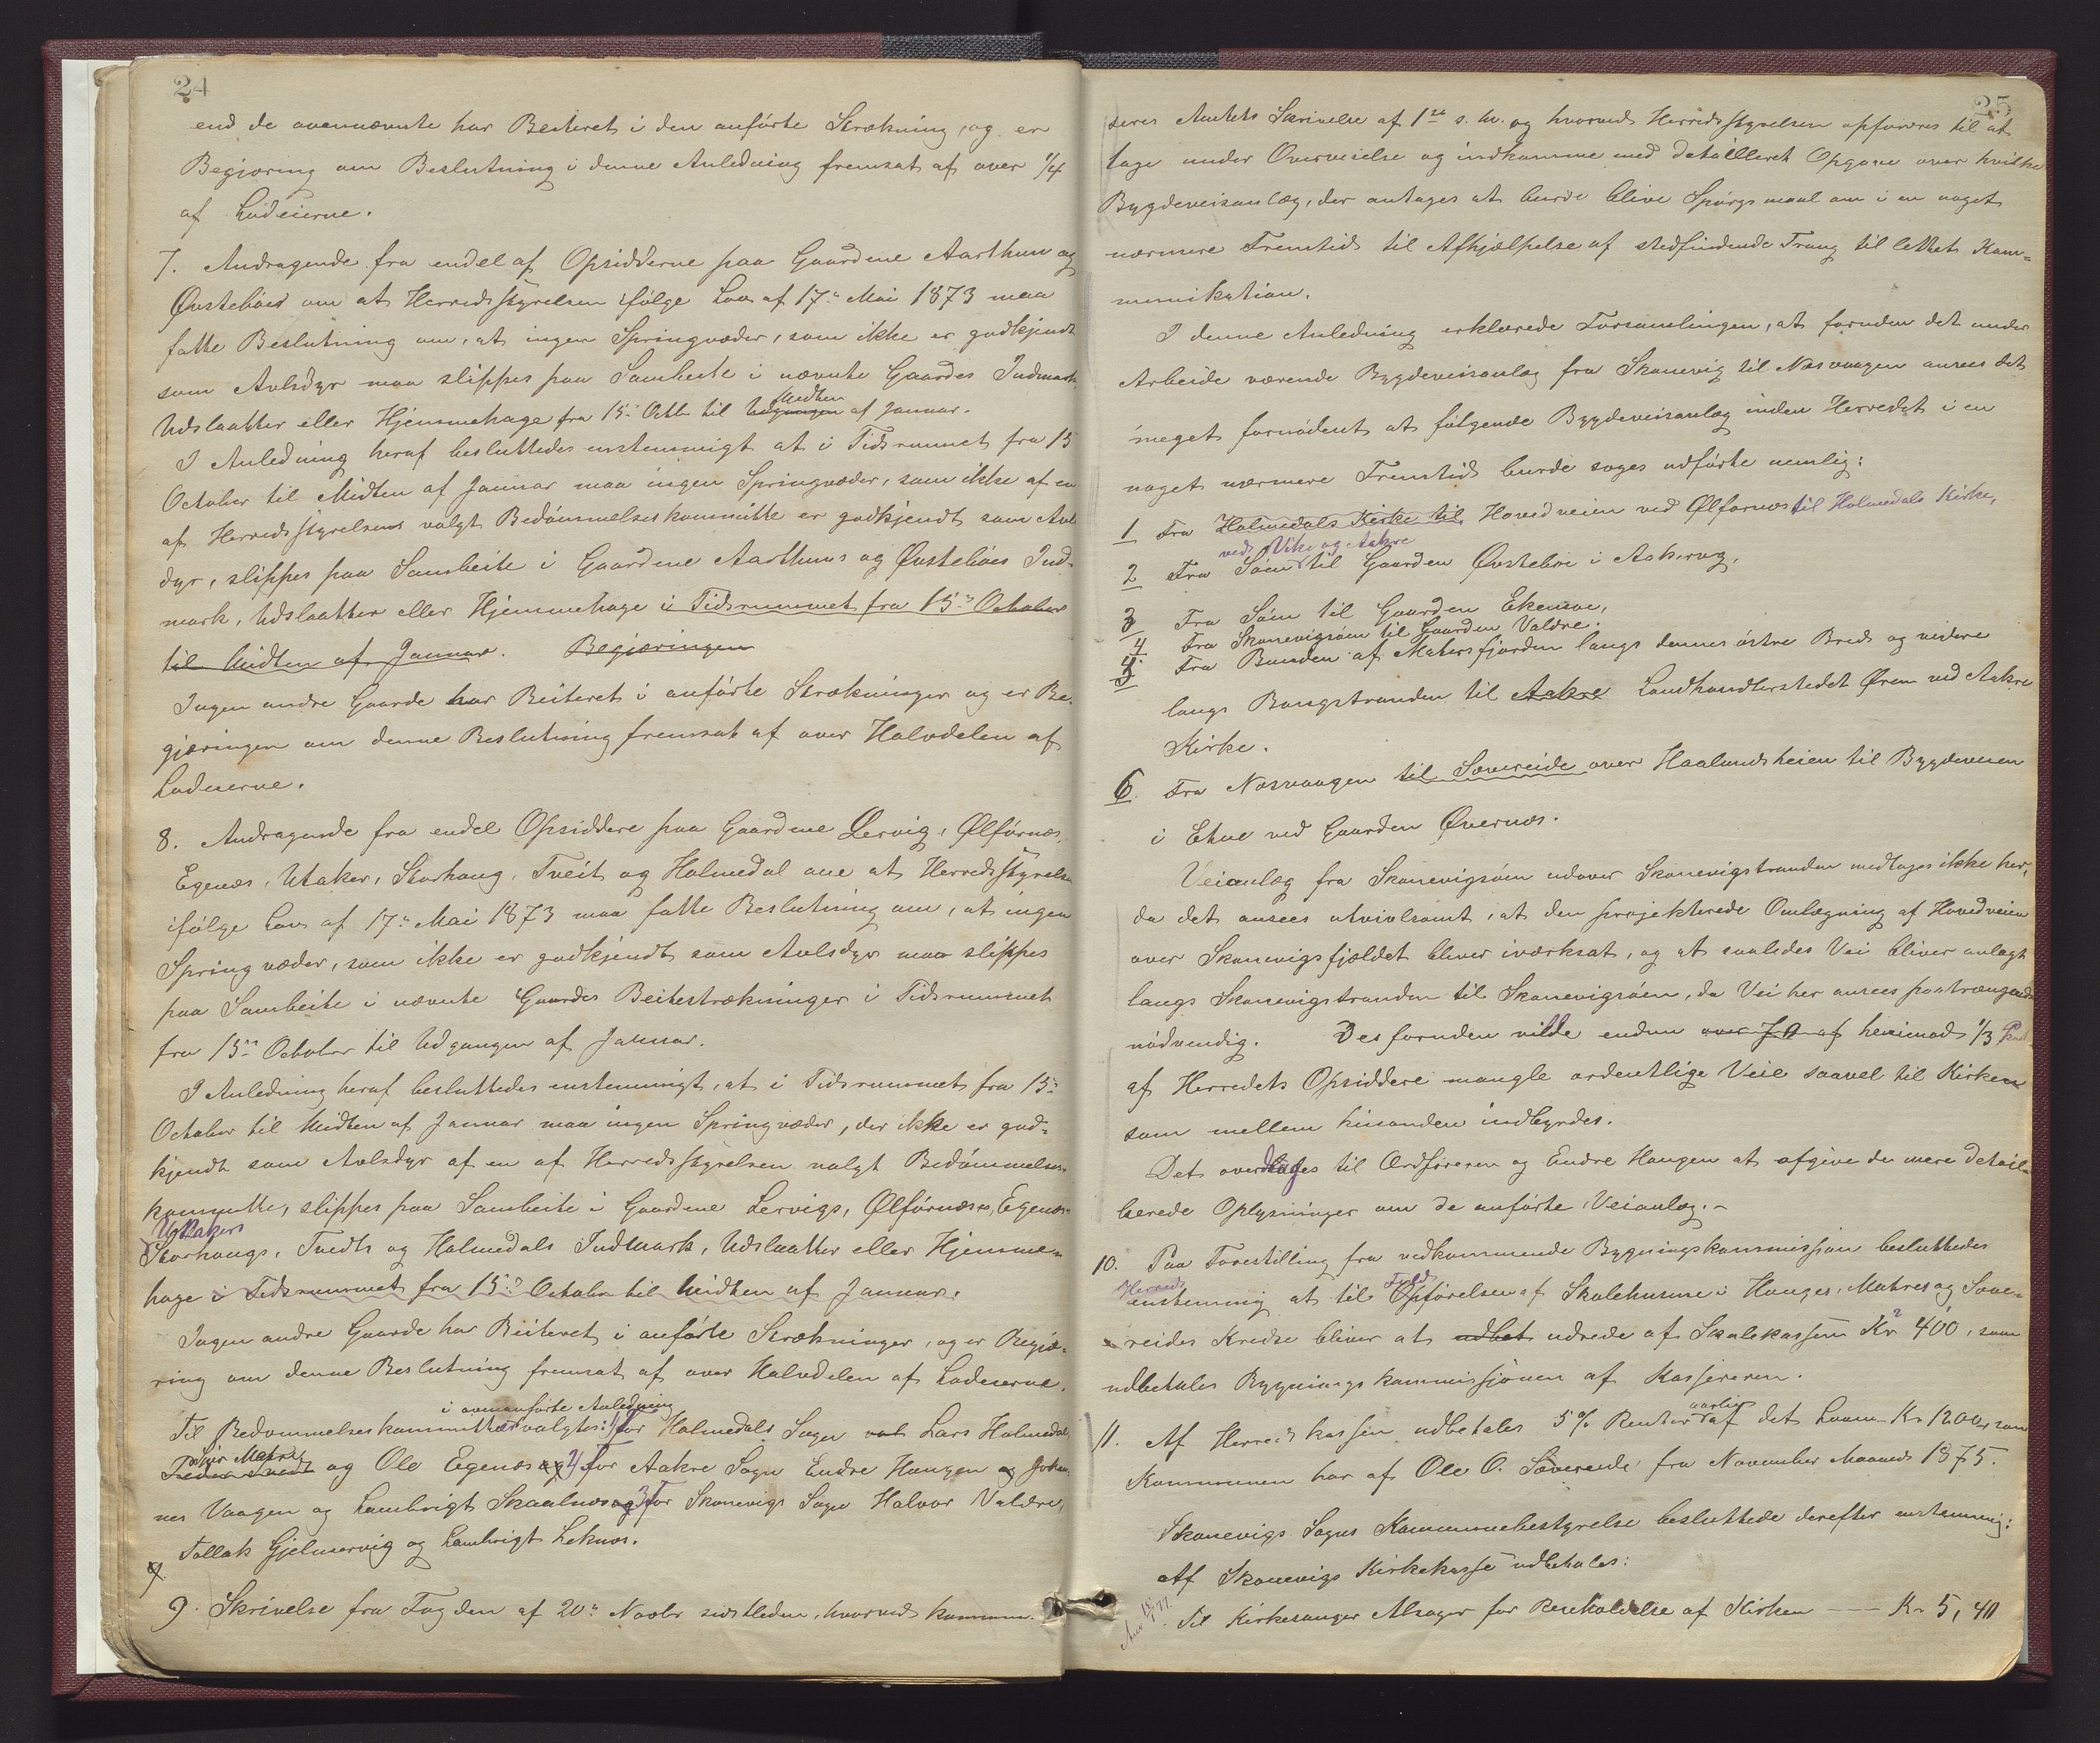 24
end de ovennævnte har Beiteret i den anførte Strækning, og er
Begjæring om Beslutning i denne Anledning fremsat af over 1/4
af Lodeierne.
7. Andragende fra endel af Opsidderne paa Gaardene Aarthun og
Øvstebøes om at Herredsstyrelsen ifølge Lov af 17de Mai 1873 maa
fatte Beslutning om, at ingen Springvæder, som ikke er godkjendt
som Avlsdyr maa slippes paa Sambeite i nævnte Gaardes Indmark,
Udslaatter eller Hjemmehage fra 15de Octbr til Udgangen Midten af Januar.
I Anledning heraf besluttedes enstemmigt at i Tidsrummet fra 15
October til Midten af Januar maa ingen Springvæder, som ikke af en
af Herredsstyrelsens valgt Bedømmelseskommitte er godkjendt som Avls
dyr, slippes paa Sambeite i Gaardene Aarthuns og Øvstebøes Ind-
mark, Udslaatter eller Hjemmehage i Tidsrummet fra 15de October
til Midten af Januar. Begjæringen
Ingen andre Gaarde har Beiteret i anførte Strækninger og er Be-
gjæringen om denne Beslutning fremsat af over Halvdelen af
Lodeierne.
8. Andragende fra endel Opsiddere paa Gaardene Lervig, Ølførnæs,
Egenæs, Utaker, Storhaug, Tveit og Holmedal om at Herredsstyrelsen
ifølge Lov af 17de Mai 1873 maa fatte Beslutning om, at ingen
Springvæder, som ikke er godkjendt som Avlsdyr maa slippes
paa Sambeite i nævnte Gaardes Beitestrækninger i Tidsrummet
fra 15de October til Udgangen af Januar.
I Anledning heraf besluttedes enstemmigt, at i Tidsrummet fra 15de
October til Midten af Januar maa ingen Springvæder, der ikke er god-
kjendt som Avlsdyr af en af Herredsstyrelsen valgt Bedømmelses-
kommitte, slippes paa Sambeite i Gaardene Lervigs, Ølførnæs, Egenæs
Utakers
Storhaugs, Tvedts og Holmedals Indmark, Udslaatter eller Hjemme-
hage i Tidsrummet fra 15de October til Midten af Januar.
Ingen andre Gaarde har Beiteret i anførte Strækninger, og er Begjæ-
ring om denne Beslutning fremsat af over Halvdelen af Lodeierne.
i ovenanførte Anledning
Til Bedømmelseskommitteer valgtes: 1) for Holmedals Sogn Lars Holmedal,
og Ole Egenæs 2) For Aakre Sogn Endre Haugen og Johan-
nes Vaagen og Lambrigt Skaalnæs 3) For Skonevigs Sogn Halvor Valdre,
Tollak Gjelmervig og Lambrigt Leknæs.
9. Skrivelse fra Fogden af 20de Novbr sidstleden, hvorved kommu-
25
seres Amtets Skrivelse af 1ste s. M. og hvorved Herredsstyrelsen opfordres til at
tage under Overveielse og indkomme med detailleret Opgave over hvilke
Bygdeveisanlæg, der antages at burde blive Spørgsmaal om i en noget
nærmere Fremtid til Afhjælpelse af stedfindende Trang til lettet Kom-
munikation.
I denne Anledning erklærede Forsamlingen, at foruden det under
Arbeide værende Bygdeveisanlæg fra Skonevig til Næsvaagen ansees det
meget fornødent at følgende Bygdeveisanlæg inden Herredet i en
noget nærmere Fremtid burde søges udførte nemlig:
1 Fra Holmedals Kirke til Hovedveien ved Ølførnæs til Holmedals Kirke,
ved Vike og Aakre
2 Fra Søen til Gaarden Øvstebøe i Aakervig,
3 Fra Søen til Gaarden Ekemoe,
4 Fra Skonevigsøen til Gaarden Valdre.
5 Fra Bunden af Matersfjorden langs dennes østre Bred og videre
langs Bangstranden til Aakre Landhandlerstedet Øren ved Aakre
Kirke.
6 Fra Næsvaagen til Sævereide over Haalandsheien til Bygdeveien
i Etne ved Gaarden Øvernæs.
Veianlæg fra Skonevigsøen udover Skonevigstranden medtages ikke her,
da det ansees utvivlsomt, at den projekterede Omlægning af Hovedveien
over Skonevigsfjeldet bliver iværksat, og at saaledes Vei bliver anlagt
langs Skonevigstranden til Skonevigsøen, da Vei her ansees paatrængende
nødvendig. Desforuden vilde endnu over henimod 1/3 Part
af Herredets Opsiddere mangle ordentlige Veie saavel til Kirken
som mellem hinanden indbyrdes.
Det overdrages til Ordføreren og Endre Haugen at afgive de mere detail-
lerede Oplysninger om de anførte Veianlæg.-
10. Paa Forestilling fra vedkommende Bygningskommission besluttedes
enstemmig at til Opførelsen af Skolehusene i Hauges, Matres og Sæve-
reides Kredse bliver at udbet udrede af Skolekassen Kr 400, som
udbetales Bygningskommissjonen af Kassereren.
11. Af Herredskassen udbetales 5% Renter aarlig af det Laan Kr 1200, som
Kommunen har af Ole O. Sævereide fra November Maaned 1875.
Skonevigs Sogns Kommunebestyrelse besluttede derefter enstemmig:
Af Skonevigs Kirkekasse udbetales:
Til Kirkesanger Alsager for Renholdelse af Kirken — Kr 5,40